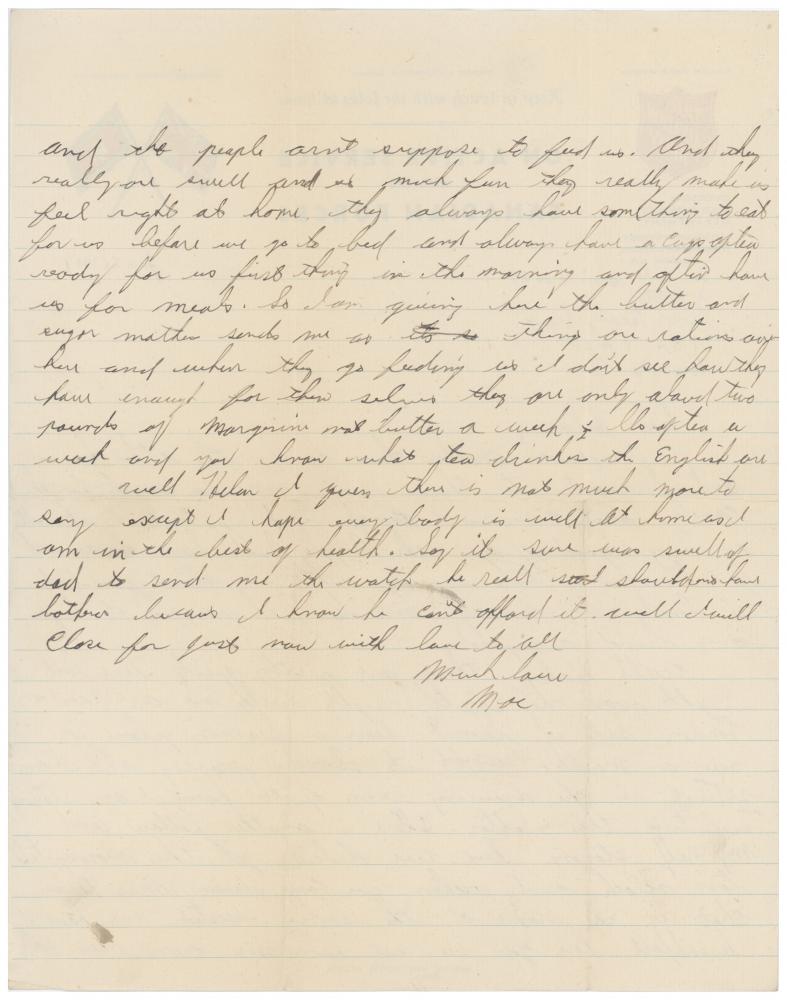 and the people arnt suppose to feed us. And they
really are swell and so much fun they really make us
feel right at home, they always have something to eat
for us before we go to bed and always have a cup of tea
ready for us first thing in the morning and often have
us for meals. So I am giving here the butter and
sugar mother sends me as things are rations over
here and when they go feeding us I don't see how they
have enough for them selves they are only aloud two
pounds of margerine not butter a week & lb of tea a
week and you know what tea drinkers the English are
well Helen I guess there is not much more to
say except I hope every body is well at home as I
am in the best of health. Say it sure was swell of
dad to send me the watch he reall should have
bother becaus I know he can't afford it. well I will
Close for just now with love to all
Much love
Mac